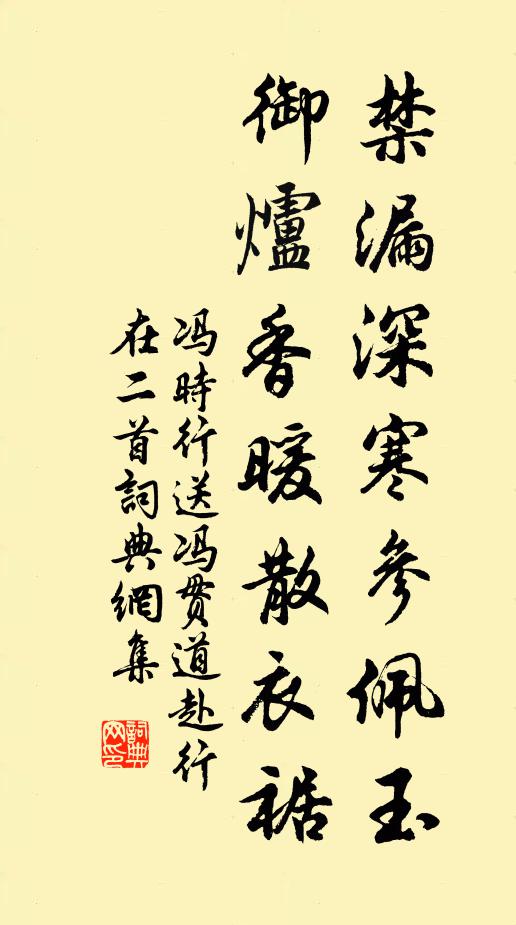 禁漏深寒參佩玉
御爐香暖散衣裾
冯時行送冯贯道赴行
在二首詞典網集
詞典